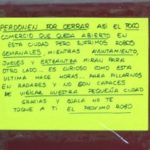 PERDONEN POR CERRAR ASI EL POCO
COMERCIO QUE QUEDA ABIERTO EN
ESTA CIUDAD PERO SUFRIMOS ROBOS
SEMANALES, MIENTRAS AYUNTAMIENTO,
JUECES Y EXTREMEÑA MIRAN PARA
OTRO LADO... ES CURIOSO COMO ESTA
ULTIMA HACE HORAS PARA PILLARNOS
EN RADARES Y NO SON CAPACES
DE VIGILAR NUESTRA PEQUEÑA CIUDAD
GRACIAS Y OJALA NO TE
TOQUE A TI EL PROXIMO ROBO